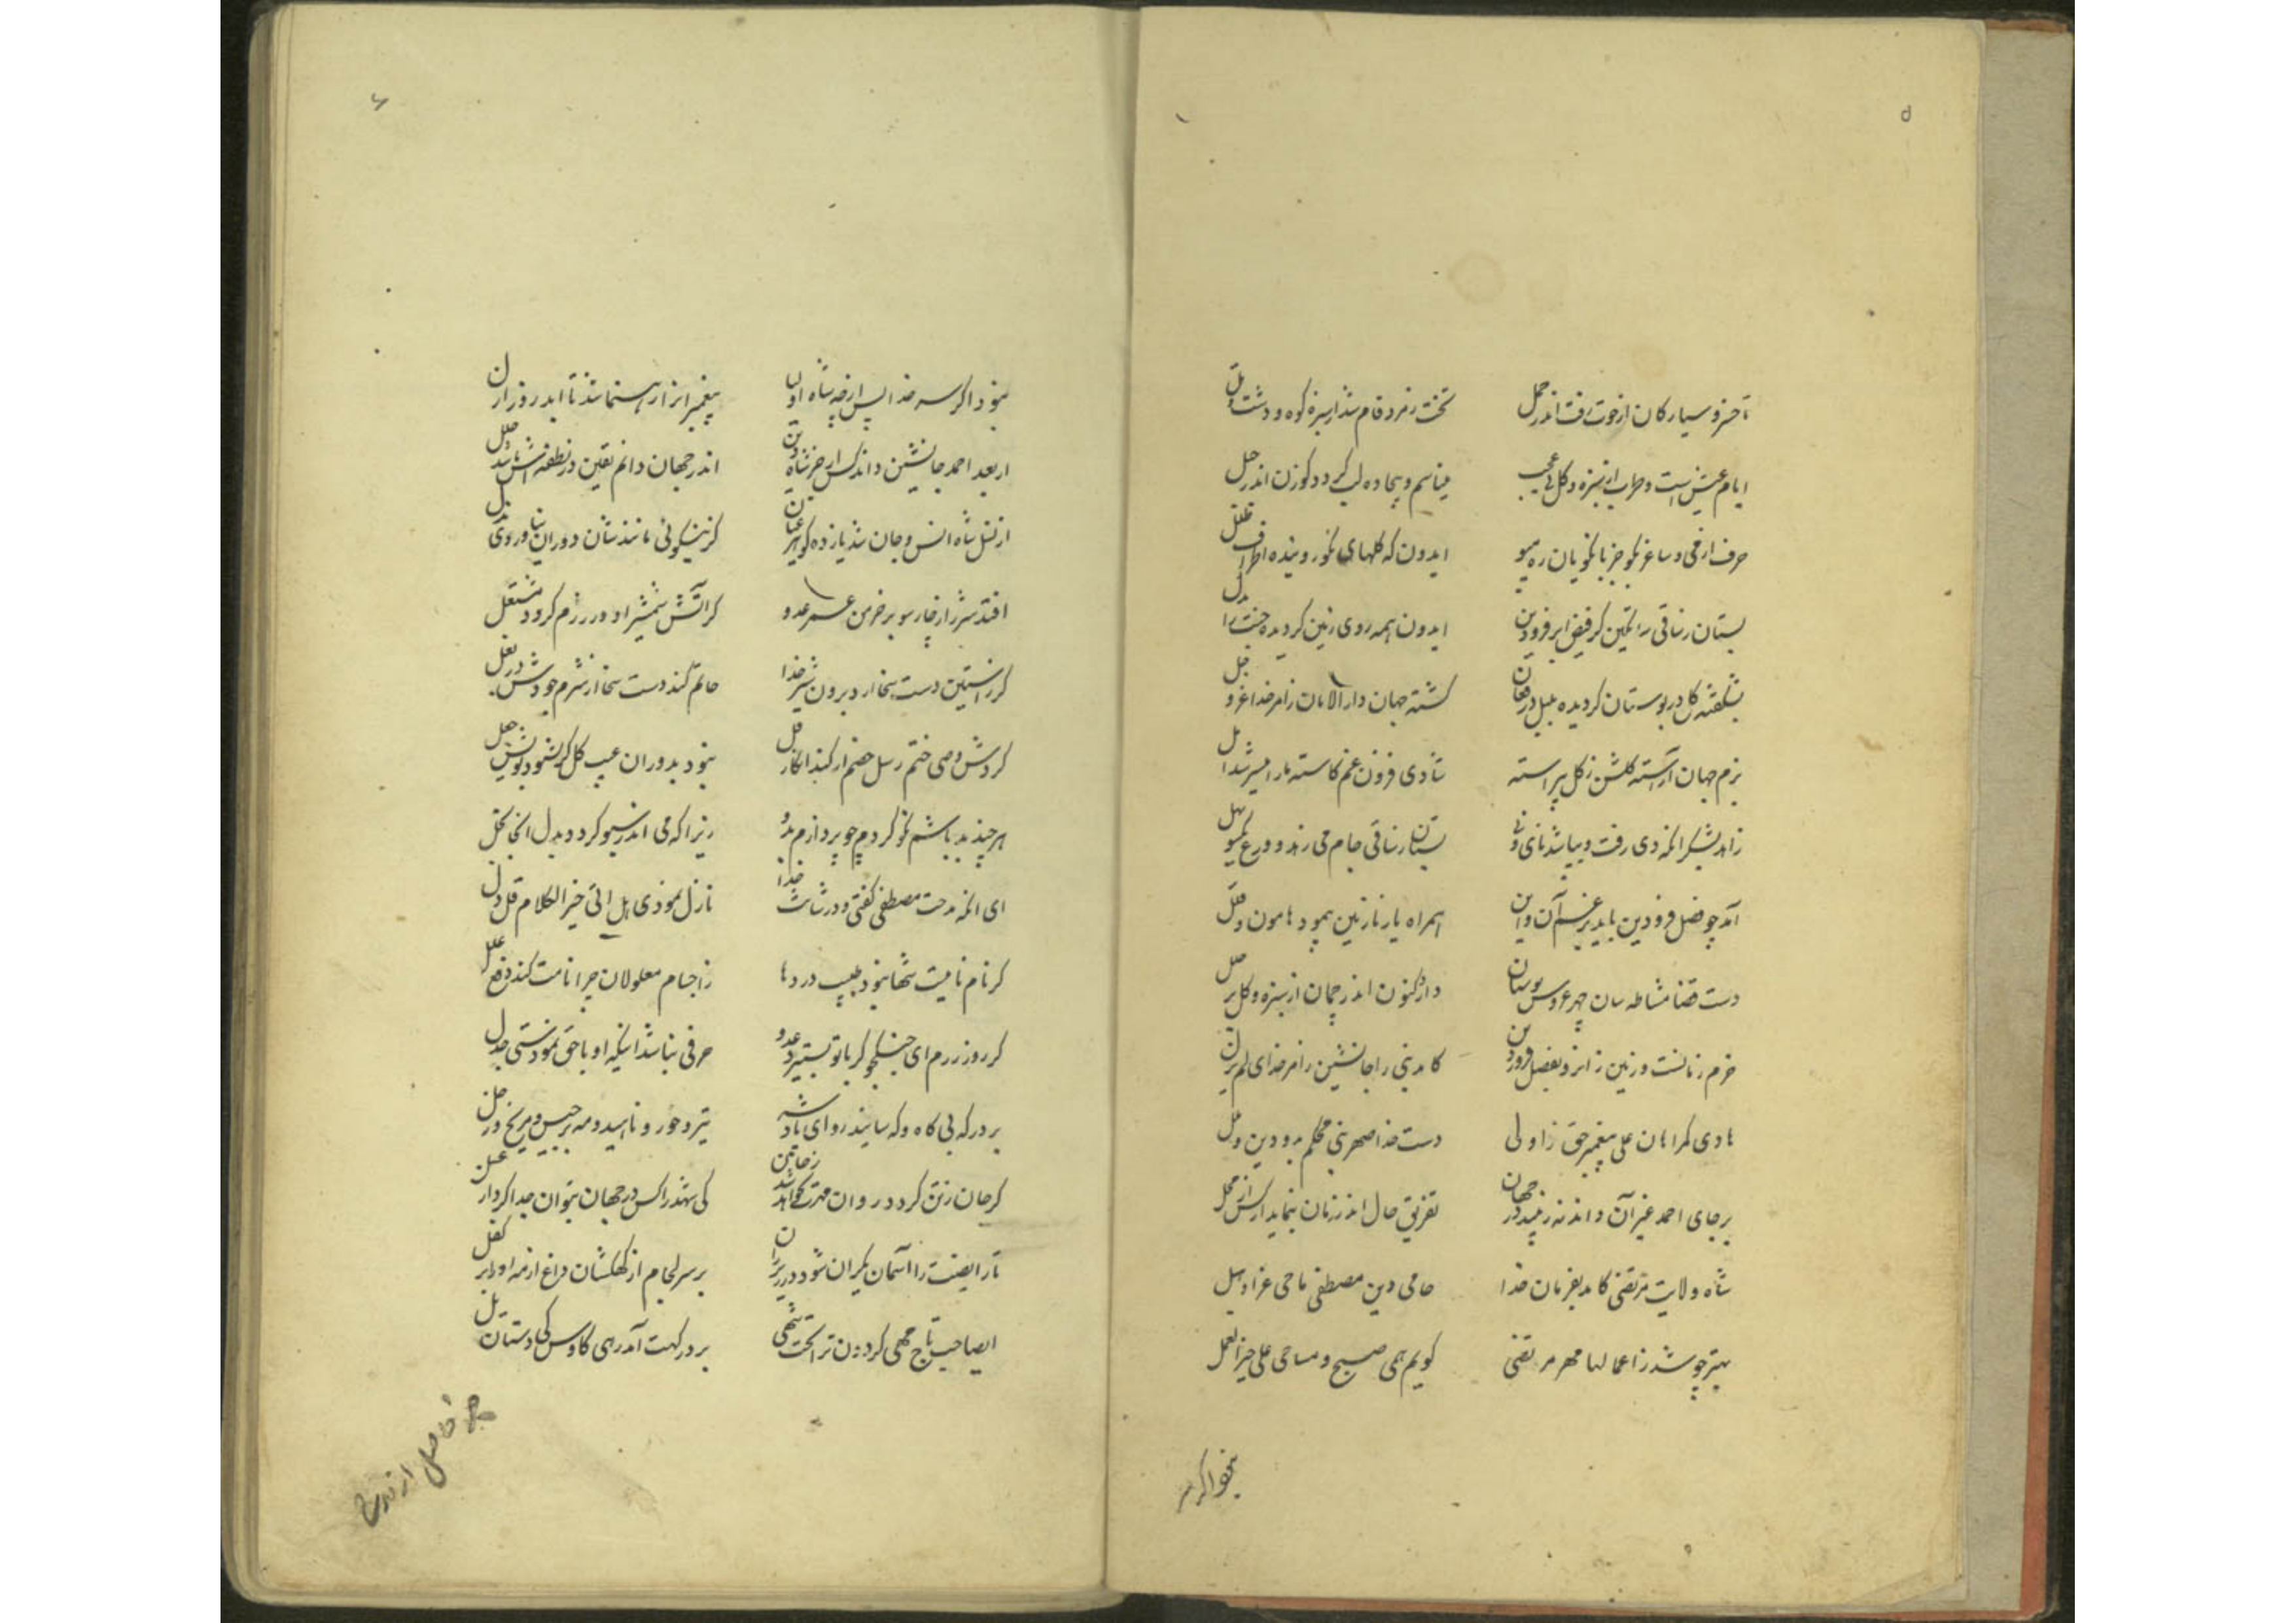 ۵
تا خسرو سیارکان از حوت رفت اندر حمل
تخت زمرد فام شد از سبزه کوه و دشت و تل
ایام عیش است و طرب از سبزه و کل
کردد کوزن اندر جبل
حرف از می و ساغر بکو جز با نکویان ره مپو
ایدون که کلهای نکو روینده اطراف
بستان ز ساقی ساتکین کز فیض ابر فرودین
ایدون همه روی زمین کردیده جنت را بدل
بشکفته کل در بوستان کردیده بلبل در فغان
کشته جهان دار الامان ز امر خدا عز و جل
بزم جهان آراسته کلشن ز کل پیراسته
شادی فزون غم کاسته ما را میسر شد امل
زاهد بشکر انکه دی رفت و بپا شد نای و نی
بستان ز ساقی جام می زهد و ورع یکسو بهل
آمد چو فصل فرودین باید برغم آن و این
همراه یار نازنین پیمود هامون و قلل
دست قضا مشاطه سان چهر عروس بوستان
دارد کنون اندر چمان از سبزه و کل بر حلل
خرم زمانست و زمین ز انرو بفصل فرودین
کامد نبی را جانشین ز امر خدای لم یزل
هادی کمراهان علی پیغمبر حق را ولی
دست خدا صهر نبی محکم بدو دین و ملل
بر جای احمد غیر آن داند نه زیبد در جهان
تفریق حال اندر زمان بنماید ار کس از محل
شاه ولایت مرتضی کامد بفرمان خدا
حامی دین مصطفی ماحی عزا و هبل
بهتر چو شد ز اعمالها مهر مرتضی
کویم همی صبح و مسا حی علی خیر العمل
نبود اکر سر
۶
نبود اکر سر خدا پس از چه شاه اولیا
پیغمبران را رهنما شد تا ابد روز ازل
از بعد احمد جانشین داند کس ار جز شاه دین
اندر جهان دانم یقین در نطفه اش باشد خلل
از نسل شاه انس و جان شد یازده کوهر عیان
کز نیکوئی مانندشان دوران نیاورد بدل
افتد شرر از چار سو بر خرمن عمر عدو
کر آتش شمشیر او در رزم کردد مشتعل
کر ز آستین دست سخا آرد برون شیر خدا
حاتم کند دست سخا از شرم جودش در بغل
کردش وصی ختم رسل خصم ار کند انکار قل
نبود بدوران عیب کل کر نشنود بویش جعل
هر چند بد باشم نکو کردم چو پردازم بدو
زیرا که می اندر سبو کردد بدل انجا بخل
ای انکه مدحت مصطفی کفتی و در شانت خدا
نازل نمودی هل اتی خیر الکلام قل و دل
کر نام نامیت شها نبود طبیب دردها
ز اجسام معلولان چرا نامت کند دفع علل
کر روز رزم ای جنکجو کر با تو بستیزد عدو
حرفی نباشد اینکه او با حق نمودستی جدل
بر درکه بی کاه و که سایند رو ای پادشه
تیر و خور و ناهید و مه برجیس و مریخ و زحل
کر جان ز تن کردد روان مهرت کجا
کی شهد را کس در جهان بتوان جدا کرد از عسل
تا رایضت را آسمان یکران شود در زیر ران
بر سر لجام از کهکشان داغ از مه او را بر کفل
ای صاحب تاج مهی کردون ترا تخت شهی
بر درکهت آمد رهی کاوس کی دستان یل